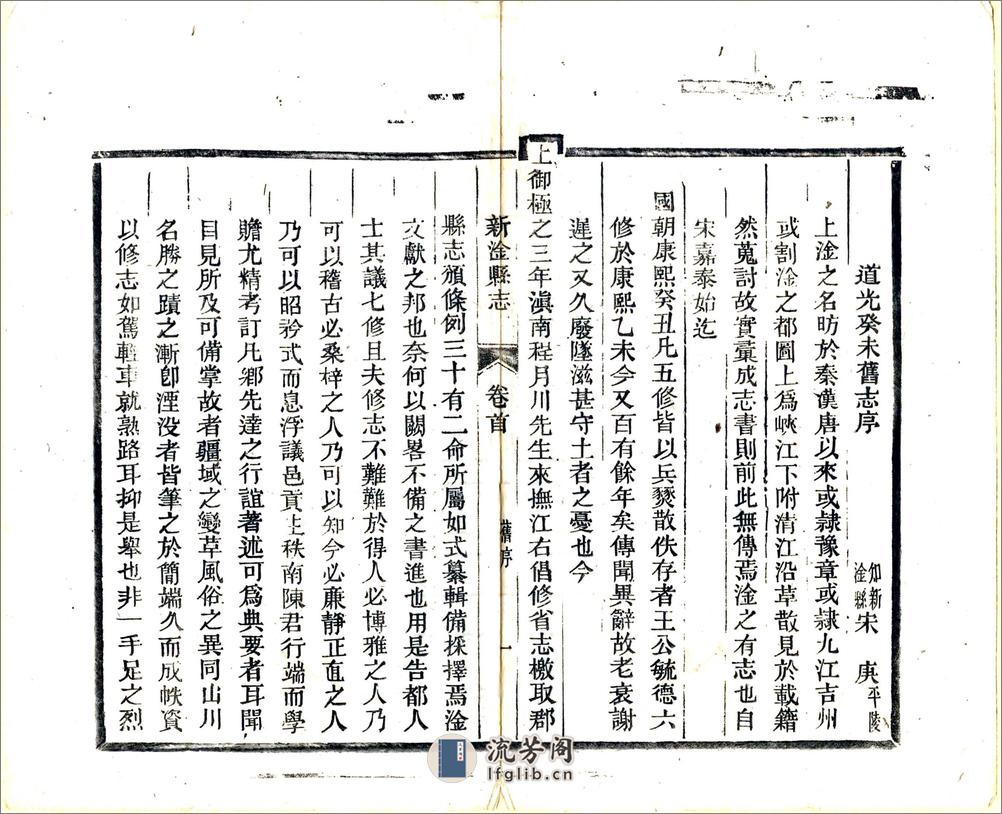 道光癸未舊志序
知新淦縣宋庚平陵
上淦之名昉於秦漢唐以來或隸豫章或隸九江吉州
或割淦之都圖上爲峽江下附清江沿革散見於載籍
然蒐討故實彙成志書則前此無傳焉淦之有志也自
宋嘉泰始迄
國朝康熙癸丑凡五修皆以兵燹散佚存者王公毓德六
修於康熙乙未今又百有餘年矣傳聞異辭故老衰謝
遲之又久廢墜滋甚守土者之憂也今
上御極之三年滇南程月川先生來撫江右倡修省志檄取郡
新淦縣志 卷首 舊序 一
縣志頒條例三十有二命所屬如式纂輯備採擇焉淦
文獻之邦也奈何以闕畧不備之書進也用是告都人
士其議七修且夫修志不難難於得人必博雅之人乃
可以稽古必桑梓之人乃可以知今必廉靜正直之人
乃可以昭矜式而息浮議邑貢士秩南陳君行端而學
贍尤精考訂凡鄉先達之行誼著述可爲典要者耳聞
目見所及可備掌故者疆域之變革風俗之異同山川
名勝之蹟之漸卽湮没者皆筆之於簡端久而成帙資
以修志如駕輕車就熟路耳抑是舉也非一手足之烈
流芳阁
lfglib.cn